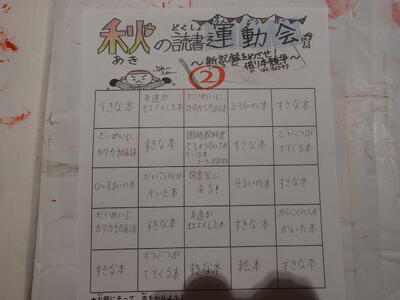 どくしょ うんどうかい
秋の読書運動会
あき
〜新記録をめざせ！
借り本競争〜
②
すきな本 友達がオススメした本 だいめいにカタカナがある本 2・3るいの本 すきな本
だいめいにカタカナがある本 すきな本 国語教科書でしょうかいされている本 すきな本 どうぶつがでてくる本
0〜8るいの本 がいこくの人がかいた本 図書室に来る！ 4るいの本 すきな本
だいめいにカタカナがある本 すきな本 友達がオススメした本 すきな本 がいこくの人がかいた本
すきな本 どうぶつがでてくる本 すきな本 絵本 すきな本